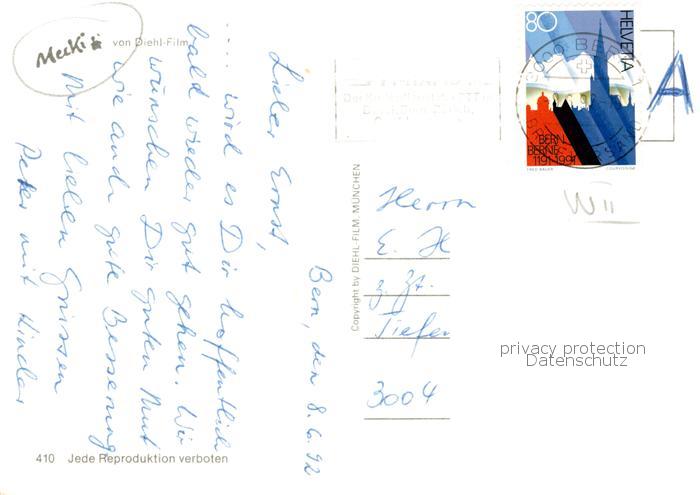 Mecki
von Diehl-Film
Bern, den 8.6.92
Lieber Ernst,
.... wird es Dir hoffentlich
bald wieder gut gehen. Wir
wünschen Dir guten Mut
wie auch gute Besserung
Mit lieben Grüssen
Peter mit Kinder
410 Jede Reproduktion verboten
Copyright by DIEHL-FILM. MÜNCHEN
80
HELVETIA
BERN
BERNE
1191-1991
FRED BAUER COURVOISIER
A
WII
Herrn
E. H
z. Zt.
Tiefen
3004
privacy protection
Datenschutz